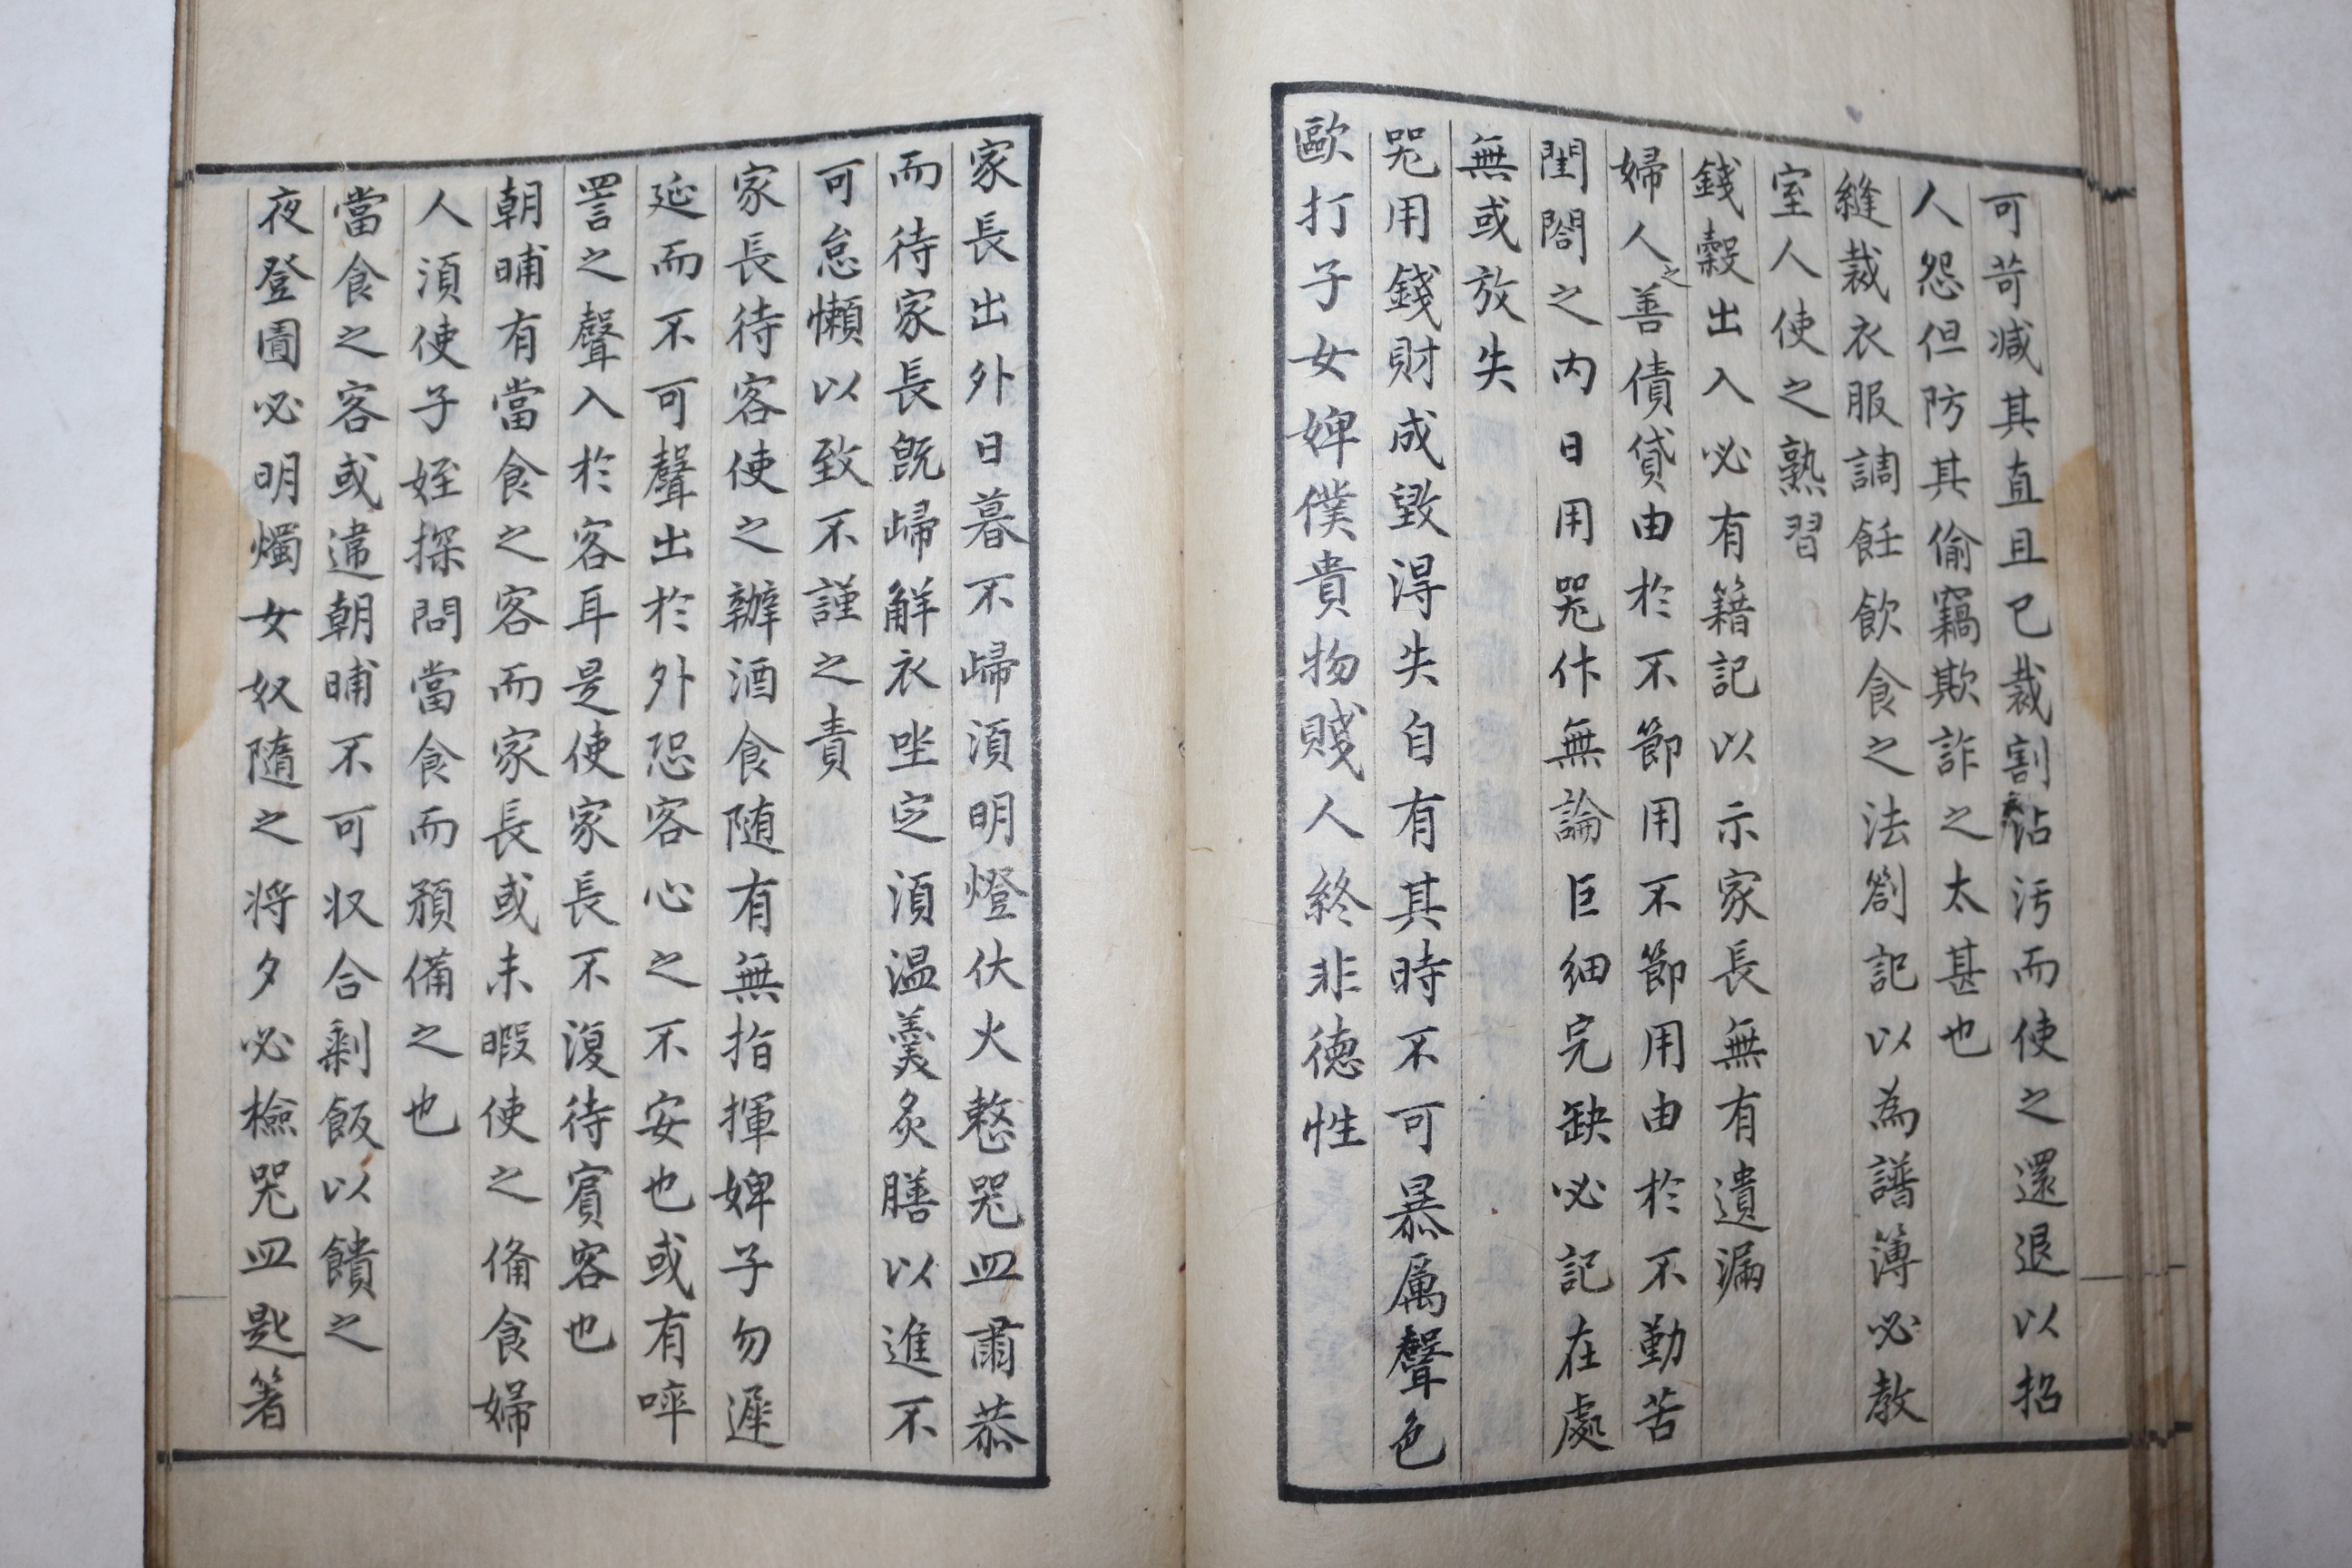 可苛减其直且已裁割點污而使之還退以招
人怨但防其偷竊欺詐之太甚也
縫裁衣服調飪飲食之法劄記以為譜簿必教
室人使之熟習
錢糓出入必有籍記以示家長無有遺漏
婦人之善債貸由於不節用不節用由於不勤苦
閨閤之內日用哭什無論巨細完缺必記在處
無或放失
哭用錢財成毀淂失自有其時不可暴厲聲色
歐打子女婢僕貴物賤人終非德性
家長出外日暮不歸湏明燈伏火整哭皿肅恭
而待家長旣歸解衣坐定湏温羹炙膳以進不
可怠懶以致不謹之責
家長待客使之辦酒食随有無指揮婢子勿遲
延而不可聲出於外恐客心之不安也或有啐
詈之聲入於客耳是使家長不復待賓客也
朝晡有當食之客而家長或未暇使之俻食婦
人湏使子姪探問當食而預備之也
當食之客或違朝晡不可収合剩飯以饋之
夜登圊必明燭女奴隨之将夕必檢哭皿匙箸